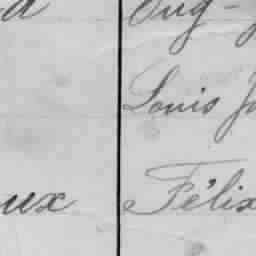 Aug -
Louis
ux Félix